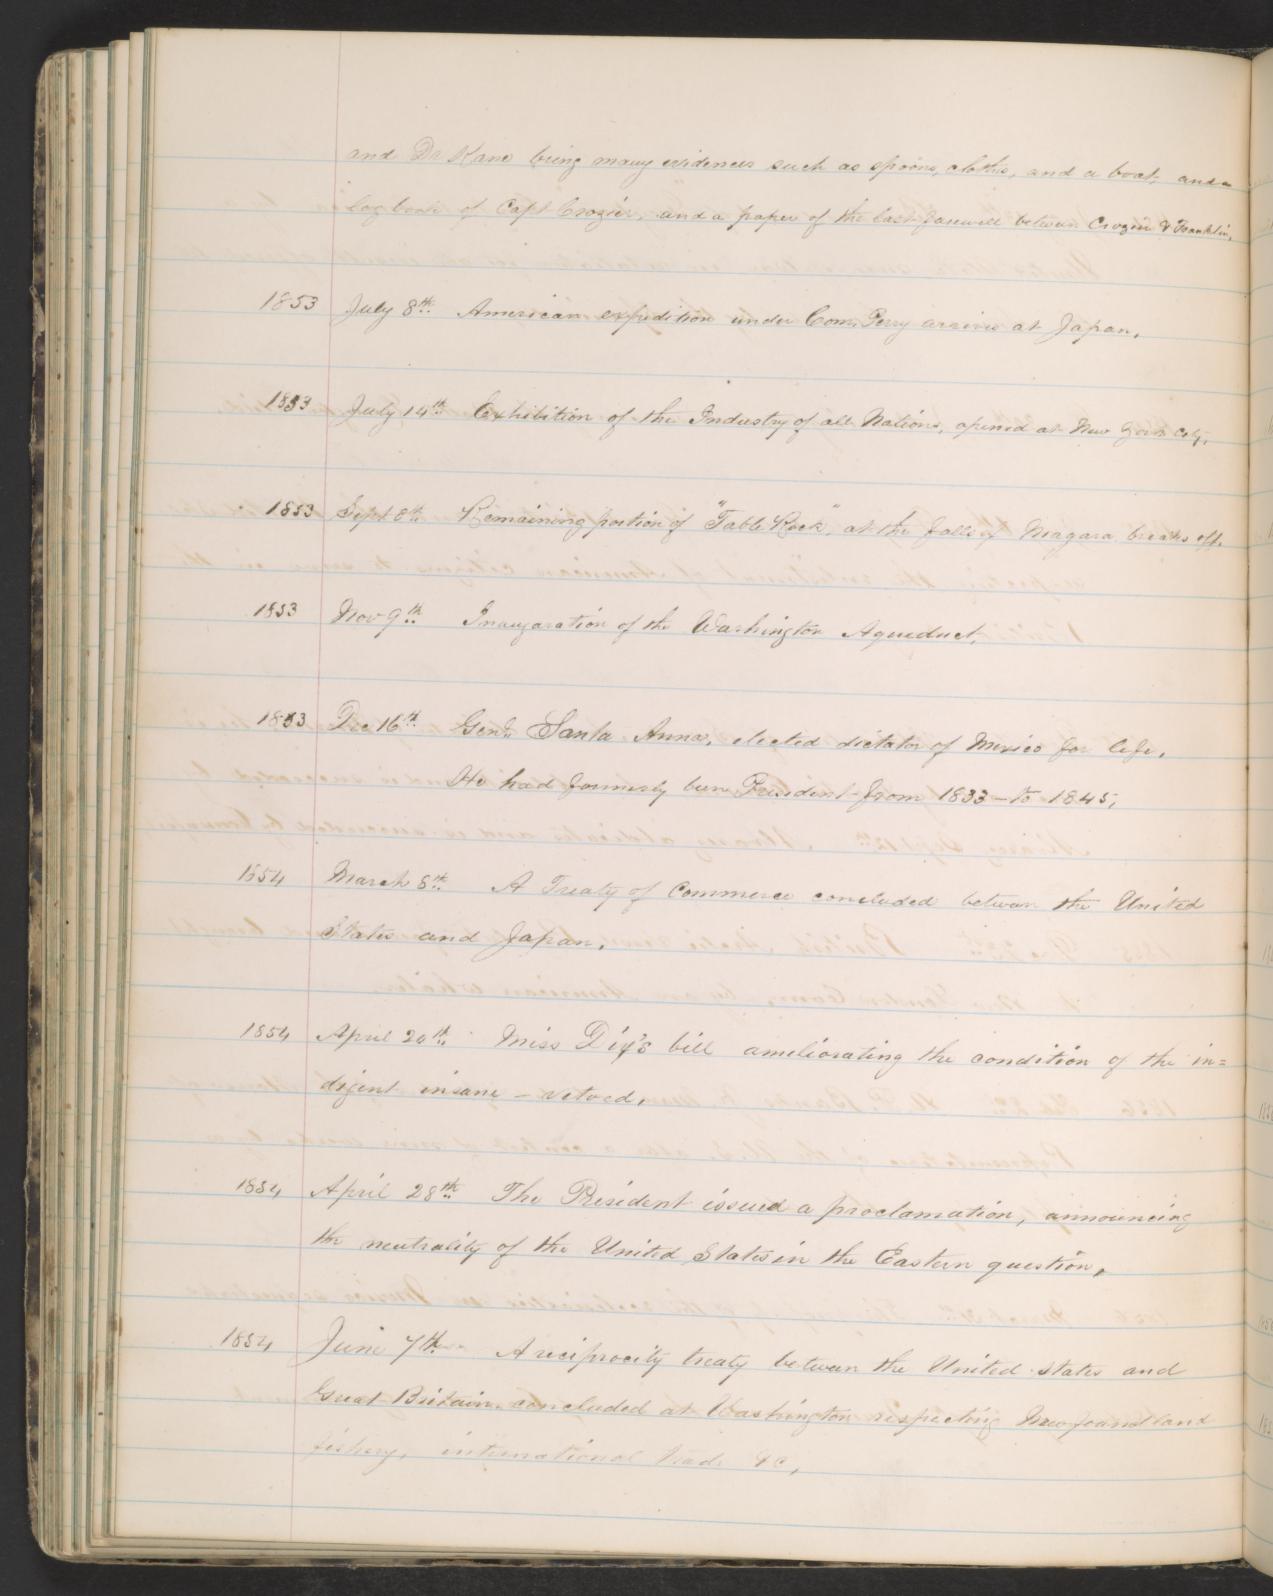 and Dr Kane bring many evidences such as spoons, cloths, and a boat, and a
log book of Capt Crozier, and a paper of the last farewell between Crozier & Franklin,
1853 July 8th. American expedition under Com. Perry arrives at Japan,
1853 July 14th Exhibition of the Industry of all Nations, opened at New York City,
1853 Sept 8th Remaining portion of "Table Rock", at the falls of Niagara breaks off.
1853 Nov 9th Inaugaration of the Washington Aqueduct,
1853 Dec 16th Genl. Santa Anna, elected dictator of Mexico for life,
He had formerly been President from 1833 – to 1845,
1854 March 8th. A Treaty of Commerce concluded between the United
States and Japan,
1854 April 20th. Miss Dix's bill ameliorating the condition of the in=
digent insane – vetoed,
1854 April 28th The President issued a proclamation, announcing
the neutrality of the United States in the Eastern question,
1854 June 7th. A reciprocity treaty between the United States and
Great Britain, concluded at Washington respecting Newfoundland
fishery, international trade &c,